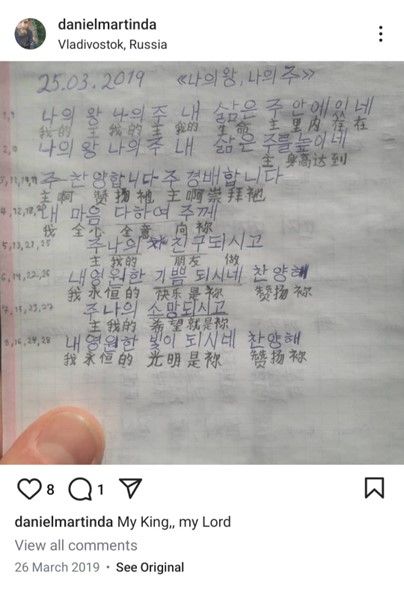 danielmartinda
Vladivostok, Russia
25.03.2019 《나의 왕, 나의 주》
나의 왕 나의 주 내 삶은 주 안에 있네
我的 主 我的 主 我的 生命 主 里内 存在
나의 왕 나의 주 내 삶은 주를 높이네
主 身高达到
주 찬양합니다 주 경배합니다
主啊 赞扬祂 主啊崇拜祂
내 마음 다하여 주께
我 全心 全意 向祢
5,13,21,25 주 나의 친구 되시고
主 我的 朋友 做
6,14,22,26 내 영원한 기쁨 되시네 찬양해
我 永恒的 快乐是祢 赞扬祢
7,15,23,27 주 나의 소망되시고
主 我的 希望就是祢
8,16,24,28 내 영원한 빛이 되시네 찬양해
我 永恒的 光明是祢 赞扬祢
8 1
danielmartinda My King,, my Lord
View all comments
26 March 2019 • See Original